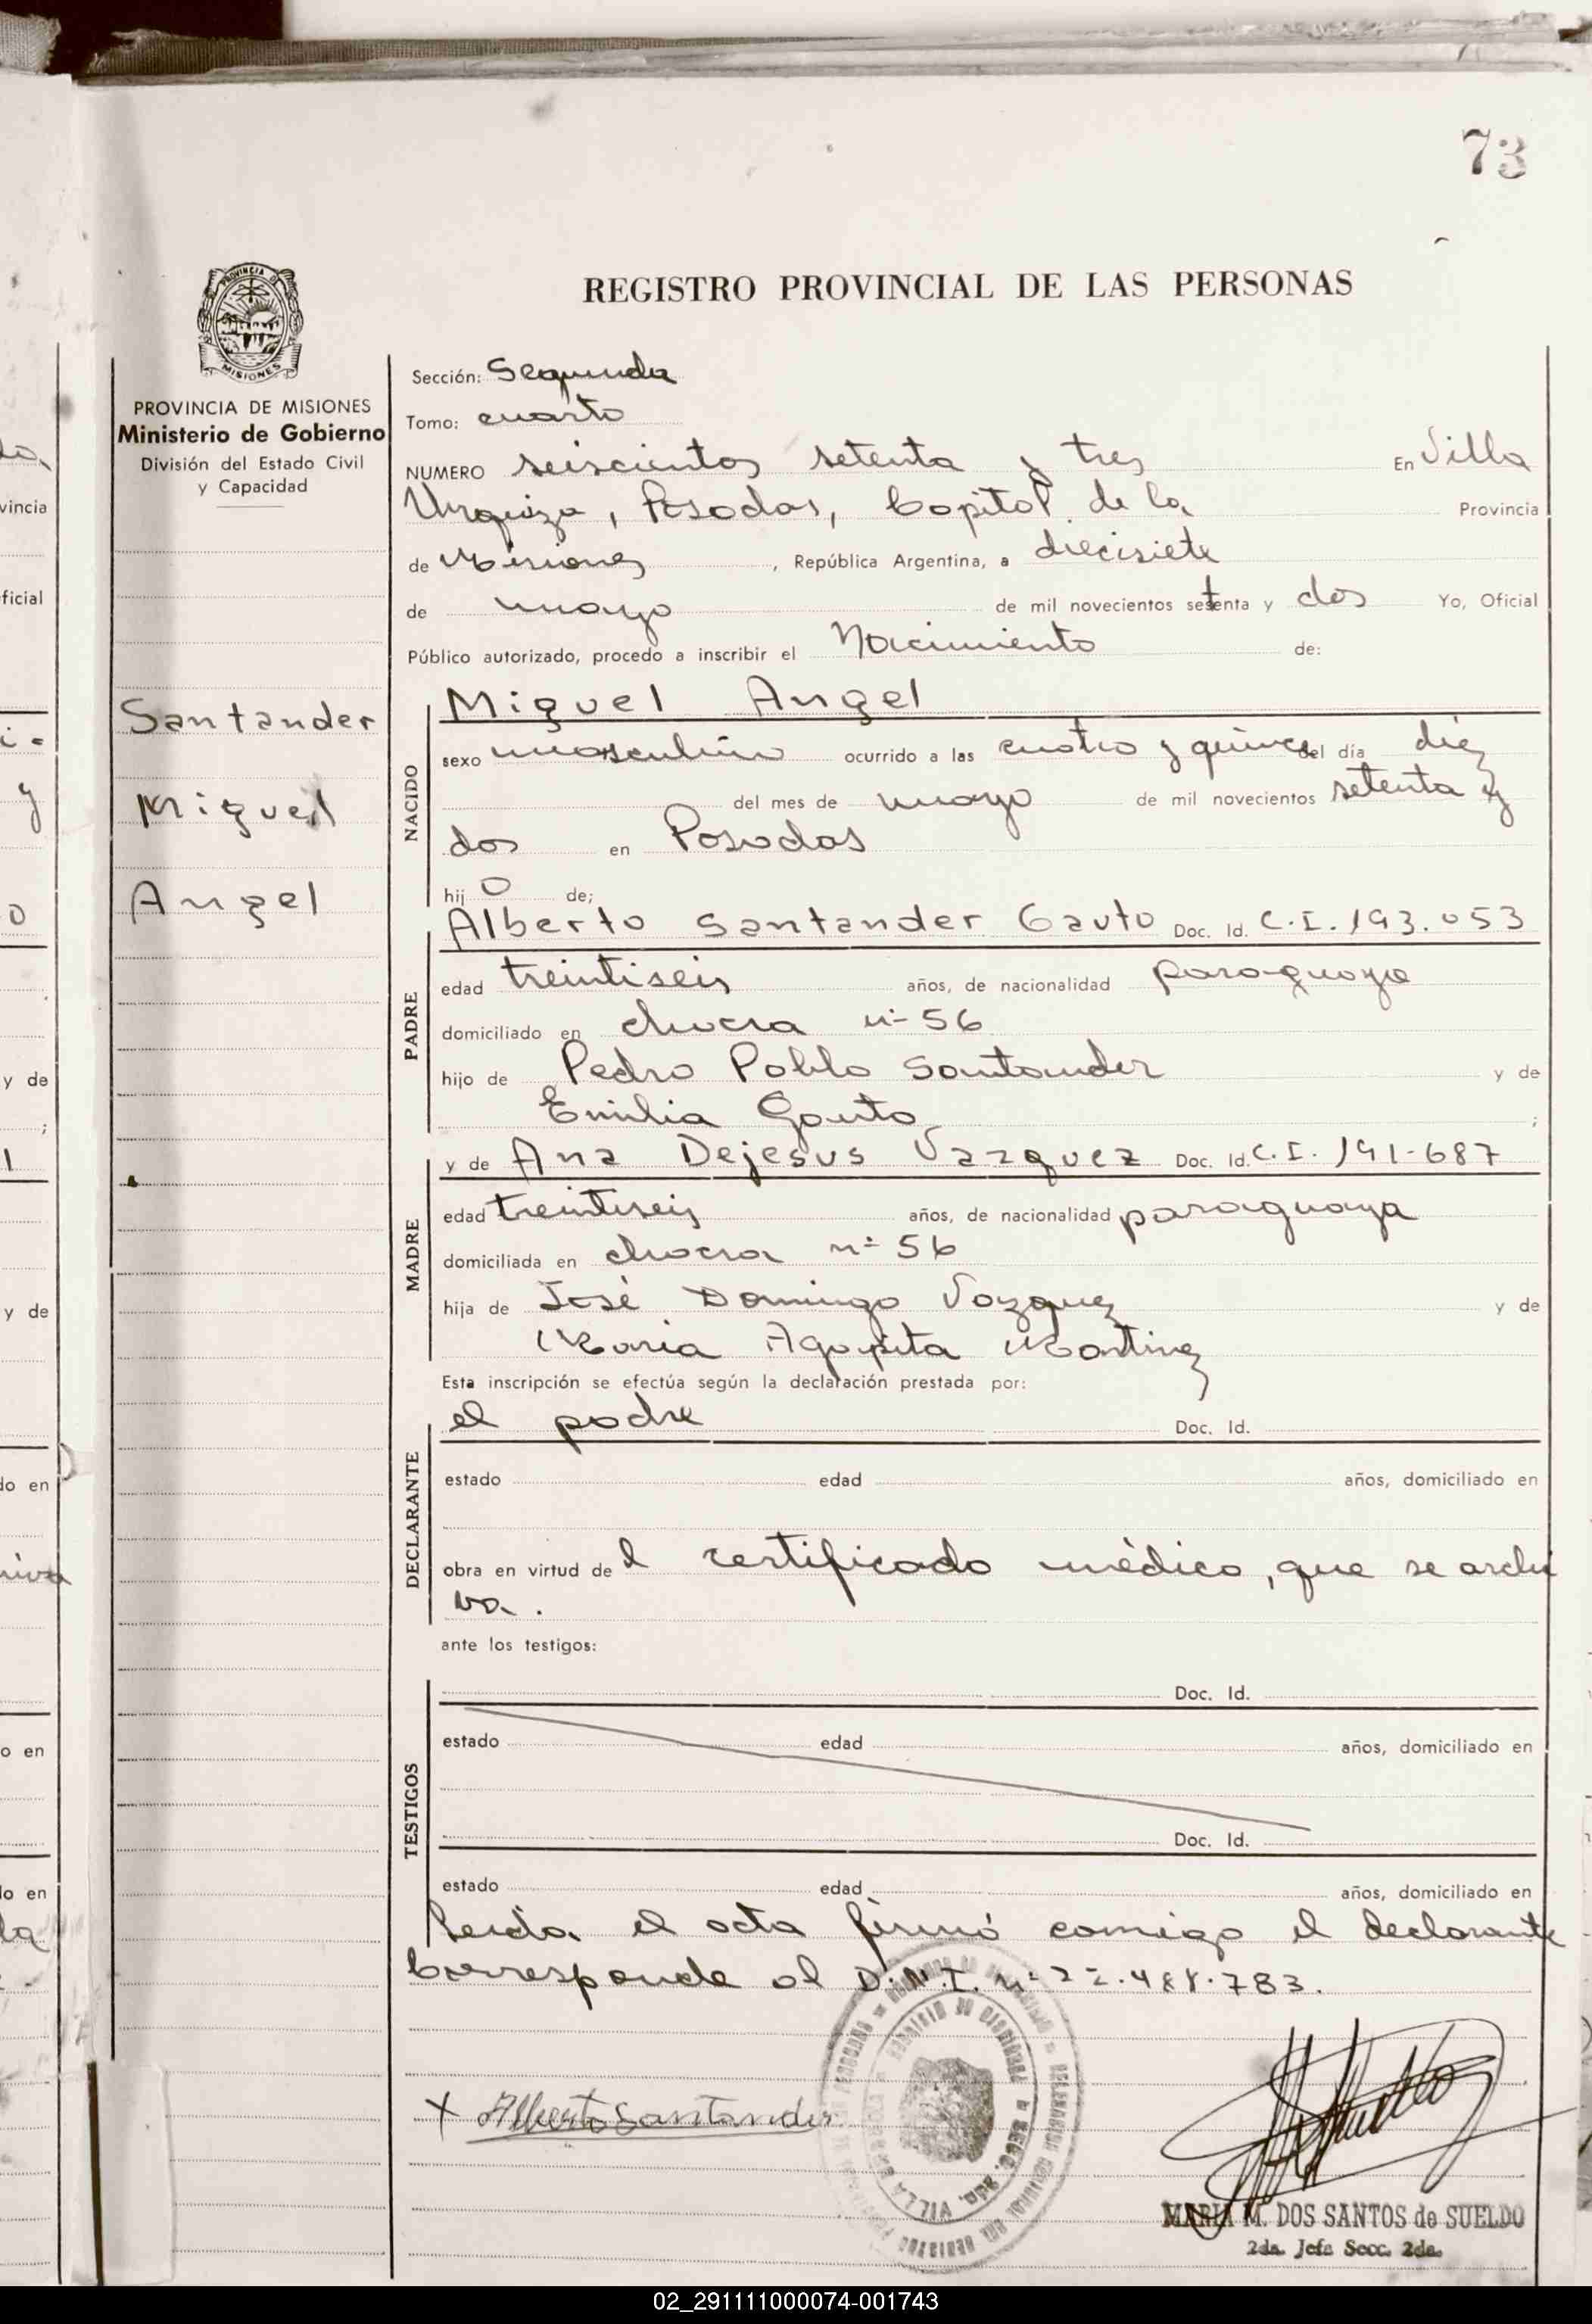 73
REGISTRO PROVINCIAL DE LAS PERSONAS
PROVINCIA DE MISIONES
Ministerio de Gobierno
División del Estado Civil
y Capacidad
Santander
Miguel
Angel
Sección: Segunda
Tomo: cuarto
NUMERO seiscientos setenta y tres En Villa
Urquiza, Posadas, Capital de la Provincia
de Misiones, República Argentina, a diecisiete
de mayo de mil novecientos setenta y dos Yo, Oficial
Público autorizado, procedo a inscribir el Nacimiento de:
NACIDO
Miguel Angel
sexo masculino ocurrido a las cuatro y quince del día diez
del mes de mayo de mil novecientos setenta y
dos en Posadas
hijo de;
PADRE
Alberto Santander Gauto Doc. Id. C.I. 193.053
edad treintiseis años, de nacionalidad paraguaya
domiciliado en chacra nº 56
hijo de Pedro Pablo Santander y de
Emilia Gauto ;
MADRE
y de Ana Dejesus Vazquez Doc. Id. C.I. 191-687
edad treintiseis años, de nacionalidad paraguaya
domiciliada en chacra nº 56
hija de José Domingo Vazquez y de
Maria Agapita Martinez
Esta inscripción se efectúa según la declaración prestada por:
DECLARANTE
el padre Doc. Id.
estado edad años, domiciliado en
obra en virtud del certificado médico, que se archi
va.
ante los testigos:
TESTIGOS
Doc. Id.
estado edad años, domiciliado en
Doc. Id.
estado edad años, domiciliado en
Leida el acta firmó comigo el declarante
Corresponde al D.N.I. nº 22.488.783.
x Alberto Santander
MARIA M. DOS SANTOS de SUELDO
2da. Jefe Secc. 2da.
02_291111000074-001743